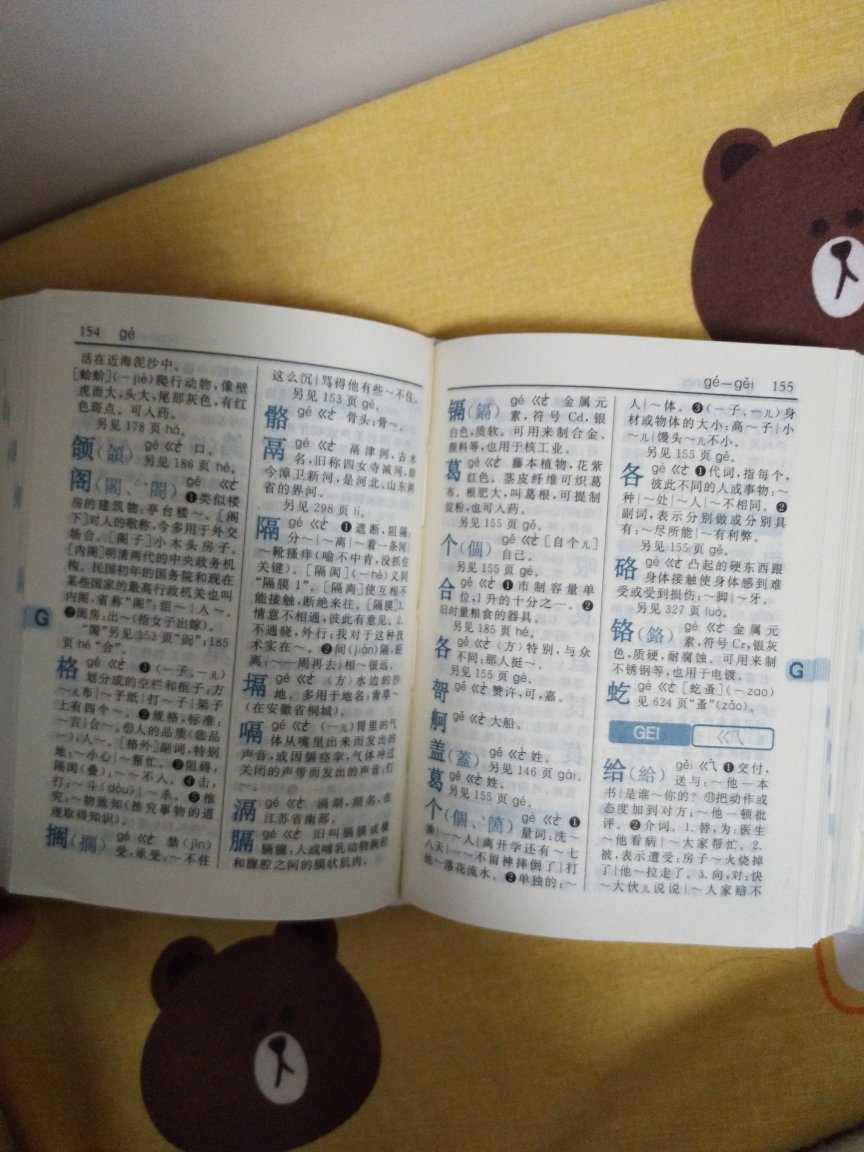 154 gé
活在近海泥沙中。
[蛤蚧](-jiè)爬行动物，像壁
虎而大，头大，尾部灰色，有红
色斑点。可人药。
另见 178 页 há。
颌(頜) gé ㄍㄜˊ 口。
另见 186 页 hé。
阁(閣、閤) gé ㄍㄜˊ ❶类似楼
房的建筑物：亭台楼～。[阁
下]对人的敬称，今多用于外交
场合。[阁子]小木头房子。
[内阁]明清两代的中央政务机
构。民国初年的国务院和现在
某些国家的最高行政机关也叫
内阁，省称“阁”：组～｜人～。
❷闺房：出～(指女子出嫁)。
“閤”另见 153 页“阁”；185
页 hé “合”。
格 gé ㄍㄜˊ ❶(—子、—儿)
划分成的空栏和框子：方
～儿布｜～子纸｜打～子｜架子
上有四个～。❷规格，标准：
～言｜合～。㊕人的品质(㊕品
—)：人～。[格外]副词，特别
地：～小心｜～帮忙。❸阻碍，
隔阂(叠)：～～不入。❹击，
打：～斗(dòu)｜～杀。❺推
究：～物致知(推究事物的道
理取得知识)。
搁(擱) gé ㄍㄜˊ 禁(jīn)
受，承受：～不住
这么沉｜骂得他有些～不住。
另见 153 页 gē。
骼 gé ㄍㄜˊ 骨头：骨～。
鬲 gé ㄍㄜˊ 鬲津河，古水
名，旧称四女寺减河，即
今漳卫新河，是河北、山东两
省的界河。
另见 298 页 lì。
隔 gé ㄍㄜˊ ❶遮断，阻隔：
分～｜～离｜～着一条河｜
～靴搔痒(喻不中肯，没抓住
关键)。[隔阂](-hé)义同
“隔膜 1”。[隔离]使互相不
能接触，断绝来往。[隔膜]1.
情意不相通，彼此有意见。2.
不通晓，外行：我对于这种技
术实在～。❷间(jiàn)隔，距
离：～一周再去｜相～很远。
塥 gé ㄍㄜˊ 〈方〉水边的沙
地。多用于地名：青草～
(在安徽省桐城)。
嗝 gé ㄍㄜˊ (—儿)胃里的气
体从嘴里出来而发出的
声音，或因膈痉挛，气体冲过
关闭的声带而发出的声音：打
～。
滆 gé ㄍㄜˊ 滆湖，湖名，在
江苏省南部。
膈 gé ㄍㄜˊ 旧叫膈膜或横
膈膜，人或哺乳动物胸腔
和腹腔之间的膜状肌肉。
G
gé—gěi 155
镉(鎘) gé ㄍㄜˊ 金属元
素，符号 Cd，银
白色，质软。可用来制合金、
颜料等，也用于核工业。
葛 gé ㄍㄜˊ 藤本植物，花紫
红色。茎皮纤维可织葛
布。根肥大，叫葛根，可提制
淀粉，也可人药。
另见 155 页 gě。
个(個) gě ㄍㄜˇ [自个儿]
自己。
另见 155 页 gè。
合 gě ㄍㄜˇ ❶市制容量单
位，1升的十分之一。❷
旧时量粮食的器具。
另见 185 页 hé。
各 gě ㄍㄜˇ 〈方〉特别，与众
不同：那人挺～。
另见 155 页 gè。
哿 gě ㄍㄜˇ 赞许，可，嘉。
舸 gě ㄍㄜˇ 大船。
盖(蓋) gě ㄍㄜˇ 姓。
另见 146 页 gài。
葛 gě ㄍㄜˇ 姓。
另见 155 页 gé。
个(個、箇) gè ㄍㄜˋ ❶
量词：洗～
澡｜～～人｜离开学还有～七
八天｜一～不留神摔倒了｜打
他～落花流水。❷单独的：～
人｜～体。❸(—子、—儿)身
材或物体的大小：高～子｜小
～儿｜馒头～儿不小。
另见 155 页 gě。
各 gè ㄍㄜˋ ❶代词，指每个，
彼此不同的人或事物：～
种｜～处｜～人｜～不相同。❷
副词，表示分别做或分别具
有：～尽所能｜～有利弊。
另见 155 页 gě。
硌 gè ㄍㄜˋ 凸起的硬东西跟
身体接触使身体感到难
受或受到损伤：～脚｜～牙。
另见 327 页 luò。
铬(鉻) gè ㄍㄜˋ 金属元
素，符号 Cr，银灰
色，质硬，耐腐蚀。可用来制
不锈钢等，也用于电镀。
虼 gè ㄍㄜˋ [虼蚤](-zao)
见 624 页“蚤”(zǎo)。
GEI ㄍㄟ
给(給) gěi ㄍㄟˇ ❶交付，
送与：～他一本
书｜是谁～你的？㊕把动作或
态度加到对方：～他一顿批
评。❷介词。1.替，为：医生
～他看病｜～大家帮忙。2.
被，表示遭受：房子～火烧掉
了｜他～拉走了。3.向，对：快
～大伙儿说说｜～人家赔不
G